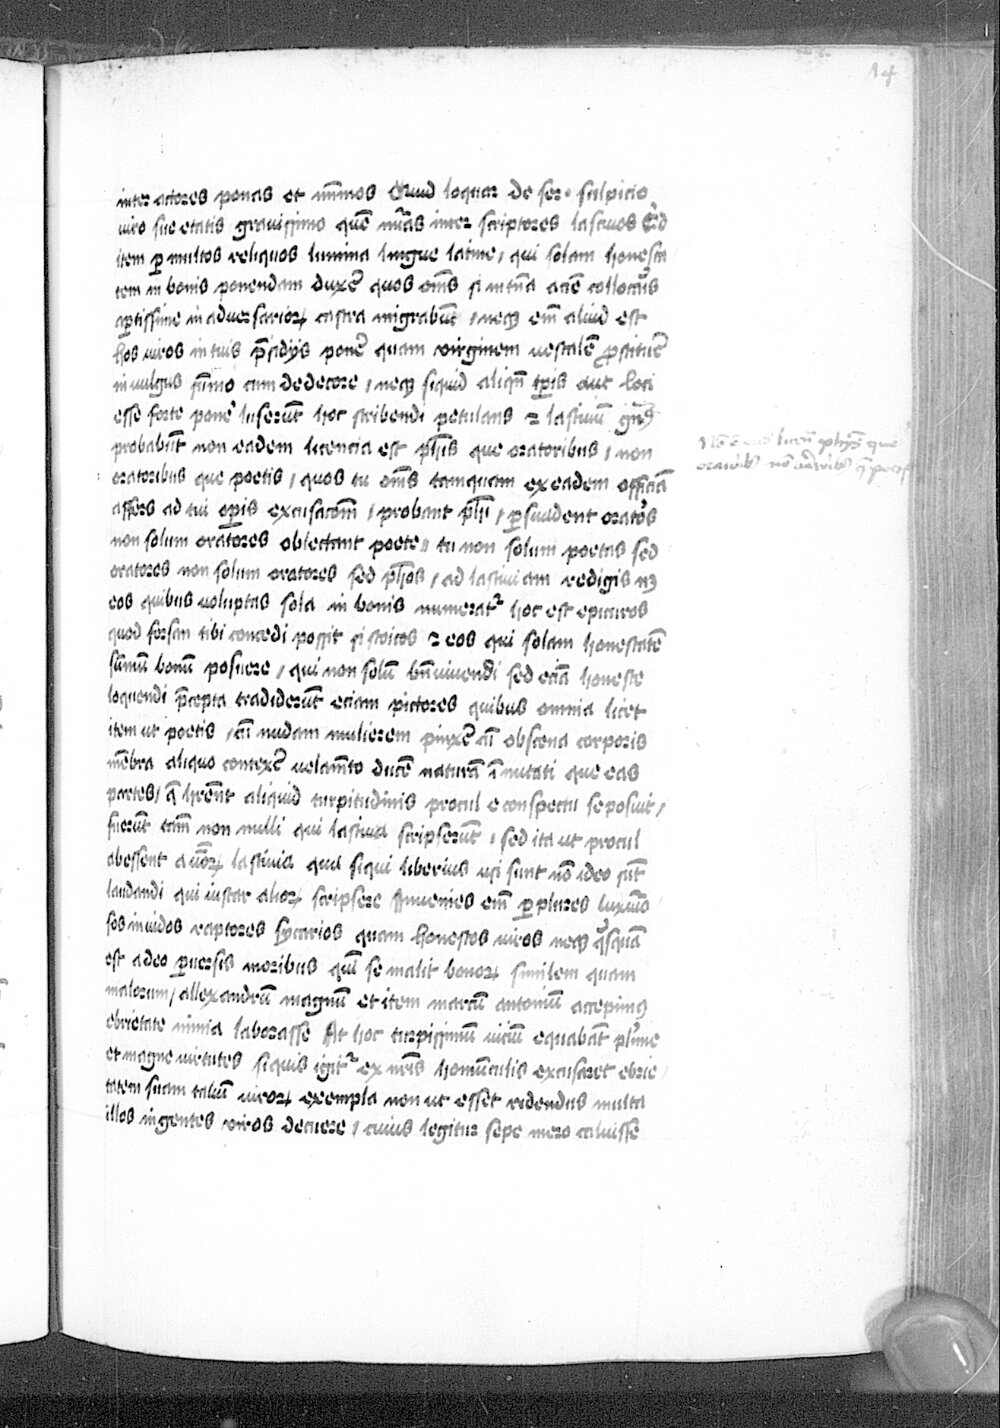 14
inter actores ponas et mīmos Quid loquar de ser. sulpicio
viro sue etatis gravissimo quē nūas inter scriptores lascivos Sed
item p multos reliquos lumina lingue latine / qui solam honesta
tem in bonis ponendam duxere quos omīs si in tua acie collocaris
aptissime in adversariorum castra migrabunt / neque enim aliud est
hos viros in tuis presidiis ponere quam virginem vestalē prostituere
in vulgus summo cum dedecore / neque siquid aliquando temporis aut loci
esse forte pone luserūt hoc scribendi petulans et lascivum genus
probabūt non eadem licencia est philosophis que oratoribus / non
oratoribus que poetis / quos tu omīs tamquam ex eadem officina
affers ad tui operis excusacionem / probant philosophi / persuadent oratores
non solum oratores oblectant poete / tu non solum poetas sed
oratores non solum oratores sed philosophos / ad lasciviam redigis neque
eos quibus voluptas sola in bonis numeratur hoc est epicuros
quod forsan tibi concedi possit si stoicos et eos qui solam honestatē
sūmū bonū posuere / qui non solū bn vivendi sed eciā honeste
loquendi precepta tradiderūt eciam pictores quibus omnia licet
item ut poetis / cū nudam mulierem pinxere cū obscena corporis
mēbra aliquo contexere velamēto ducē naturā imitati que eas
partes / que haberent aliquid turpitudinis procul e conspectu seposuit /
fuerūt tamen non nulli qui lasciva scripserūt / sed ita ut procul
abessent a verborum lascivia quod siqui liberius usi sunt nō ideo sūt
laudandi qui instar aliorum scripsere Invenies enim p plures luxurio
sos invidos raptores sycarios quam honestos viros neque quisquā
est adeo perversis moribus quī se malit bonorum similem quam
malorum / allexandrū magnū et item marcū antoniū accepimus
ebrietate nimia laborasse At hoc turpissimū viciū equabāt plurime
et magne virtutes siquis igitur ex nostris homūculis excusaret ebrie
tatem suam talium virorum exempla non ut esset ridendus multa
illos ingentes viros decuere / cuius legitur sepe mero caluisse